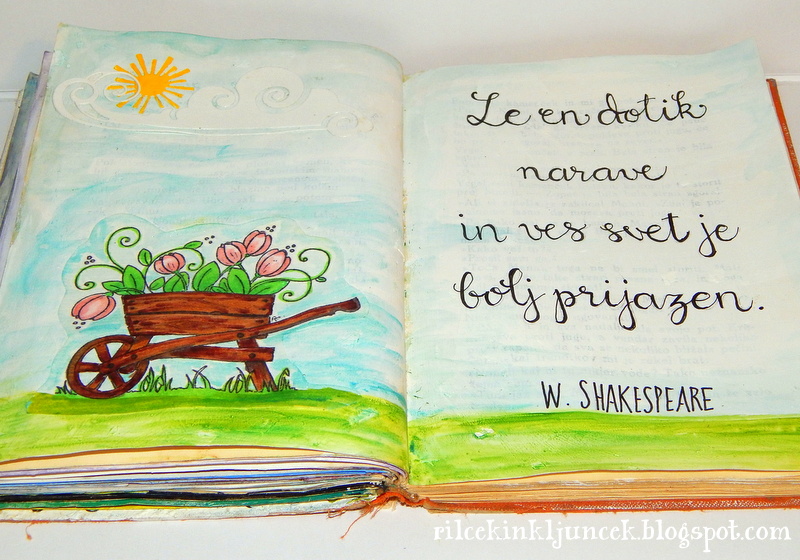 Le en dotik
narave
in ves svet je
bolj prijazen.
W. SHAKESPEARE
rilcekinkljuncek.blogspot.com